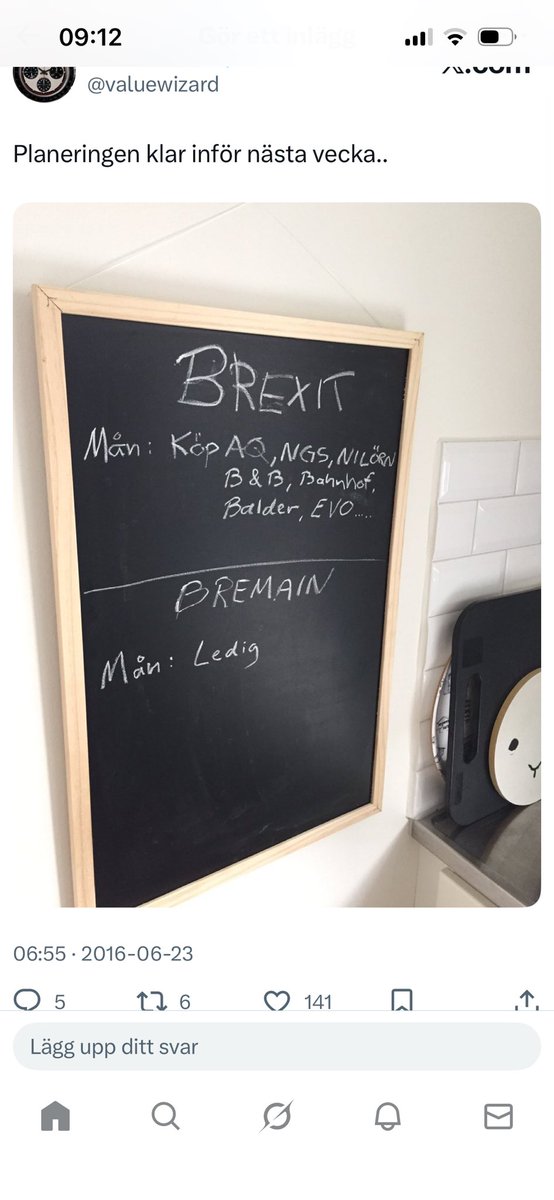 09:12
@valuewizard
Planeringen klar inför nästa vecka..
BREXIT
Mån: Köp AQ, NGS, NILÖRN
B & B, Bahnhof,
Balder, EVO.....
BREMAIN
Mån: Ledig
06:55 · 2016-06-23
5 6 141
Lägg upp ditt svar